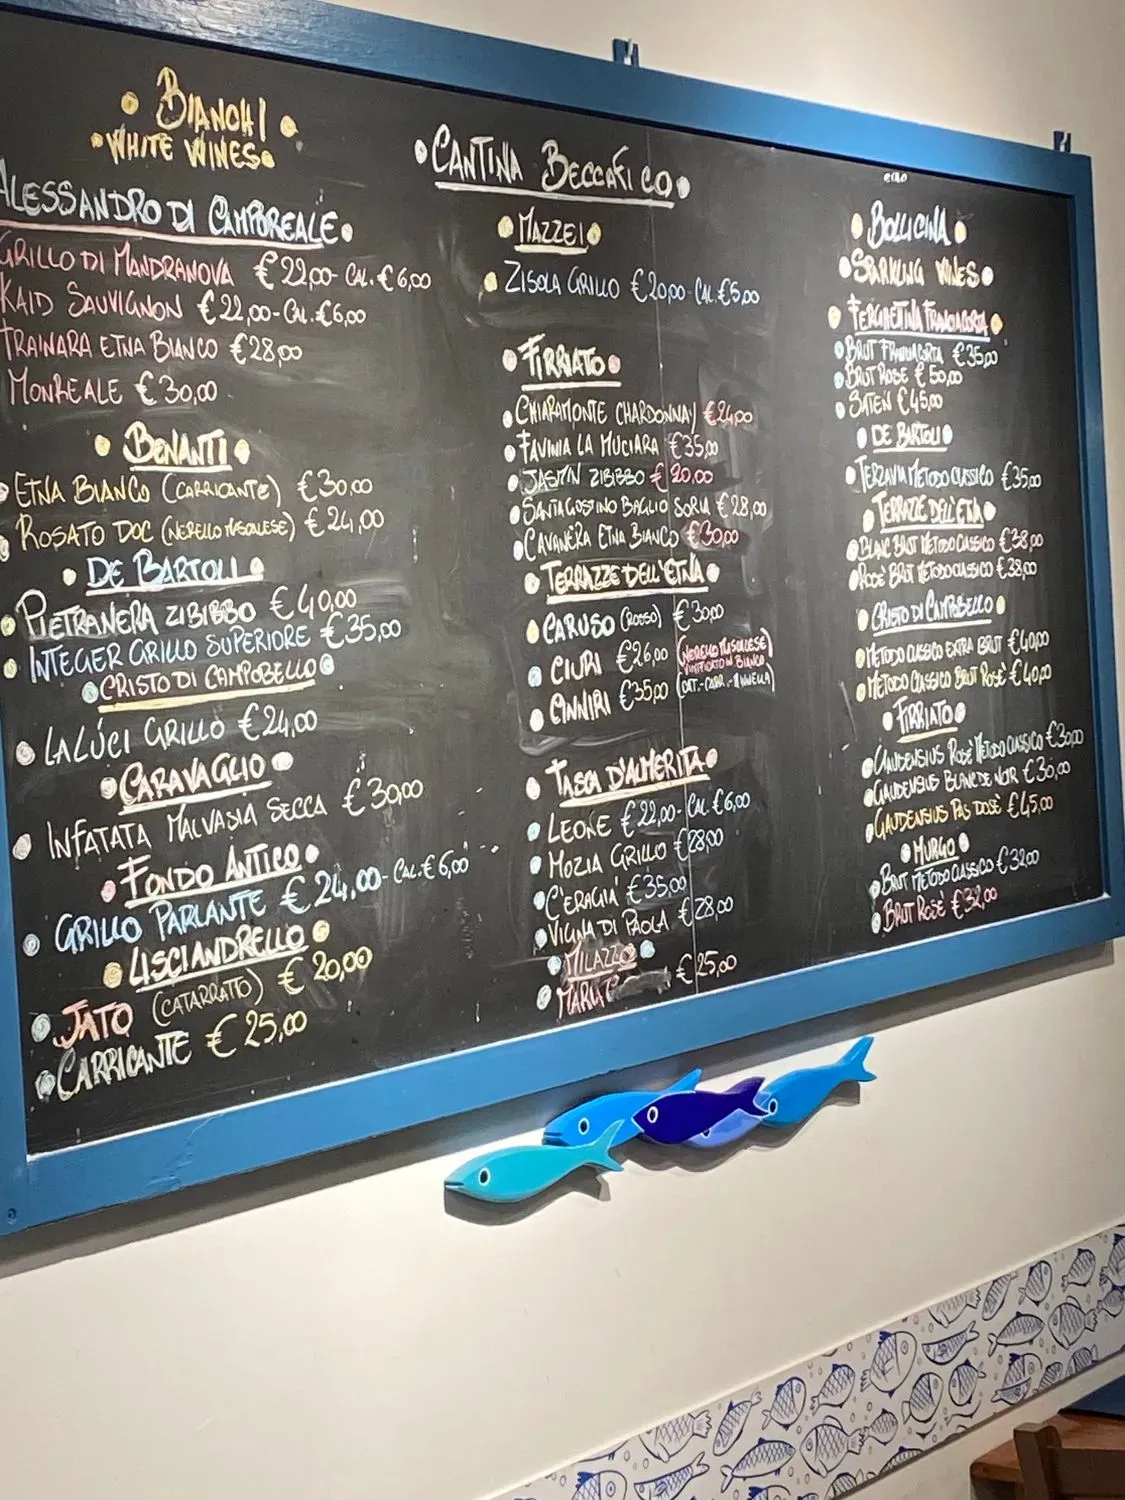 BIANCHI
WHITE WINES
ALESSANDRO DI CAMPOREALE
GRILLO DI MANDRANOVA €22,00 - CAL. €6,00
KAID SAUVIGNON €22,00 - CAL. €6,00
TRAINARA ETNA BIANCO €28,00
MONREALE €30,00
BENANTI
ETNA BIANCO (CARRICANTE) €30,00
ROSATO DOC (NERELLO MASCALESE) €24,00
DE BARTOLI
PIETRANERA ZIBIBBO €40,00
INTEGER GRILLO SUPERIORE €35,00
CRISTO DI CAMPOBELLO
LALÚCI GRILLO €24,00
CARAVAGLIO
INFATATA MALVASIA SECCA €30,00
FONDO ANTICO
GRILLO PARLANTE €24,00 - CAL. €6,00
LISCIANDRELLO
JATO (CATARRATTO) €20,00
CARRICANTE €25,00
CANTINA BECCAFICO
MAZZEI
ZISOLA GRILLO €20,00 - CAL. €5,00
FIRRIATO
CHIARAMONTE CHARDONNAY €24,00
FAVINIA LA MUCIARA €35,00
JASMN ZIBIBBO €20,00
SANTAGOSTINO BAGLIO SORIA €28,00
CAVANERA ETNA BIANCO €30,00
TERRAZZE DELL'ETNA
CARUSO (ROSSO) €30,00
CIURI €26,00 (NERELLO MASCALESE
VINIFICATO IN BIANCO)
CINNIRI €35,00 (CAT.-CARR.-MINNELLA)
TASCA D'ALMERITA
LEONE €22,00 - CAL. €6,00
MOZIA GRILLO €28,00
C'ERAGIA' €35,00
VIGNA DI PAOLA €28,00
MILAZZO
€25,00
BOLLICINA
SPARKLING WINES
FERGHETTINA FRANCIACORTA
BRUT FRANCIACORTA €35,00
BRUT ROSÉ €50,00
SATEN €45,00
DE BARTOLI
TERZAVIA METODO CLASSICO €35,00
TERRAZZE DELL'ETNA
BLANC BRUT METODO CLASSICO €38,00
ROSÈ BRUT METODO CLASSICO €38,00
CRISTO DI CAMPOBELLO
METODO CLASSICO EXTRA BRUT €40,00
METODO CLASSICO BRUT ROSÈ €40,00
FIRRIATO
GAUDENSIUS ROSÈ METODO CLASSICO €30,00
GAUDENSIUS BLANC DE NOIR €30,00
GAUDENSIUS PAS DOSÈ €45,00
MURGO
BRUT METODO CLASSICO €32,00
BRUT ROSÈ €32,00